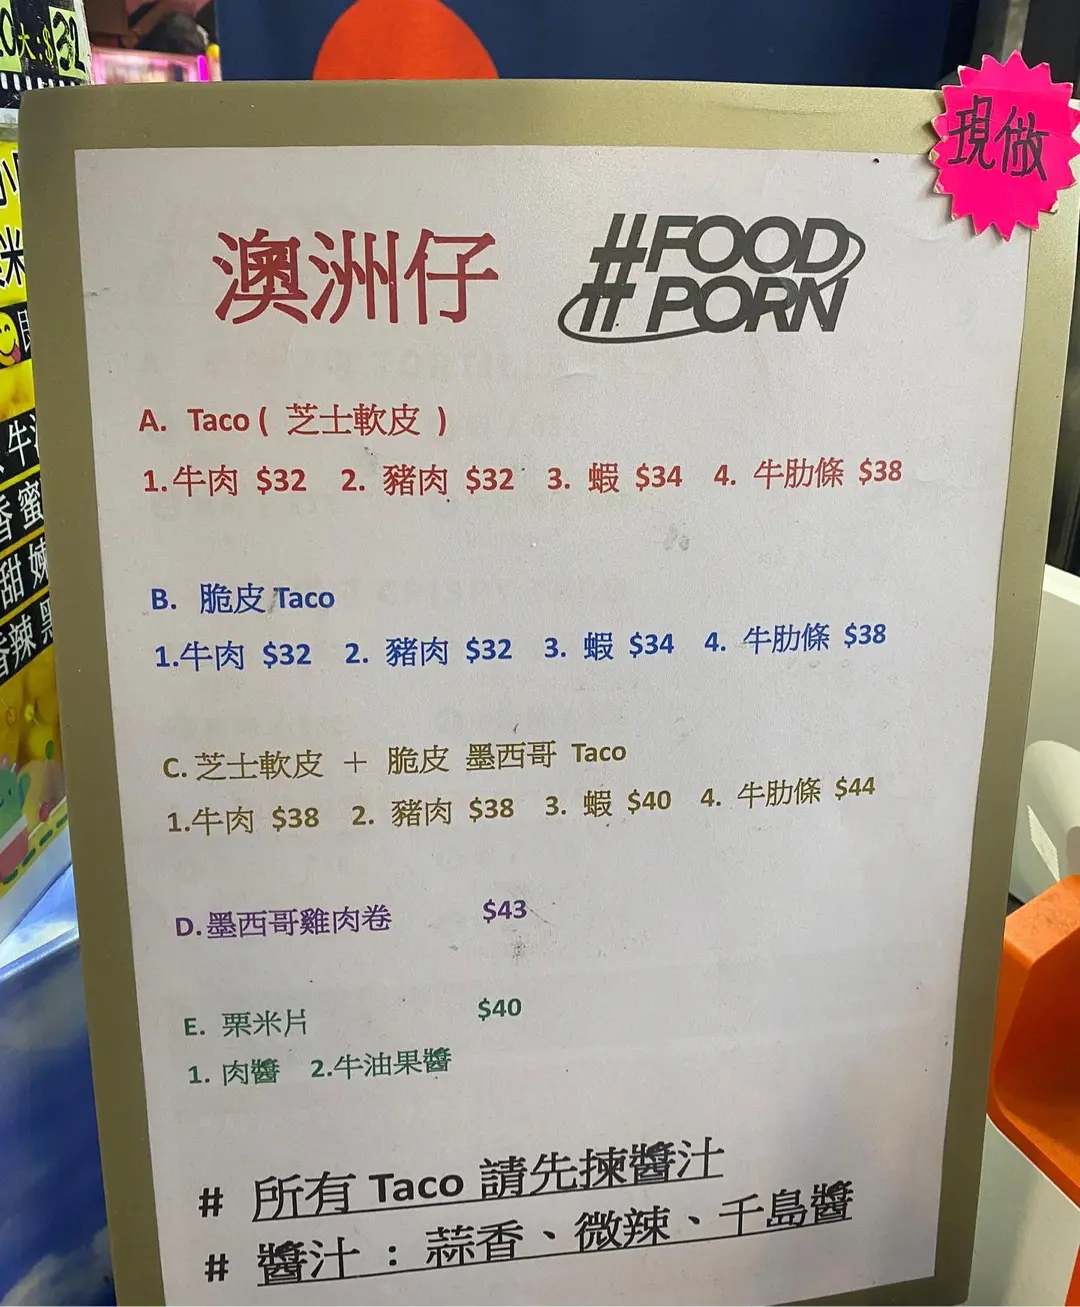 大:$32
現做
澳洲仔
#FOOD
#PORN
A. Taco ( 芝士軟皮 )
1.牛肉 $32 2. 豬肉 $32 3. 蝦 $34 4. 牛肋條 $38
B. 脆皮 Taco
1.牛肉 $32 2. 豬肉 $32 3. 蝦 $34 4. 牛肋條 $38
C. 芝士軟皮 + 脆皮 墨西哥 Taco
1.牛肉 $38 2. 豬肉 $38 3. 蝦 $40 4. 牛肋條 $44
D.墨西哥雞肉卷 $43
E. 栗米片 $40
1. 肉醬 2.牛油果醬
# 所有 Taco 請先揀醬汁
# 醬汁 : 蒜香、微辣、千島醬